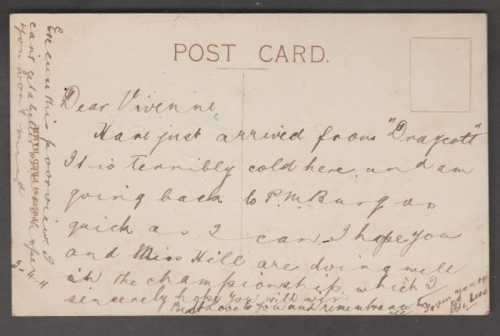 POST CARD.
Dear Vivenne
Have just arrived from "Draycott"
It is terribly cold here, and am
going back to P.M.Burg as
quick as I can. I hope you
and Miss Hill are doing well
in the championship which I
sincerely hope you will win.
Best love to you and remembrance to
from yours
Excuse this poor view I
can't get a better
you won't mind